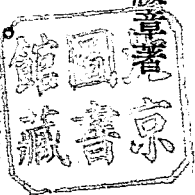 章著
京
圖書
館藏